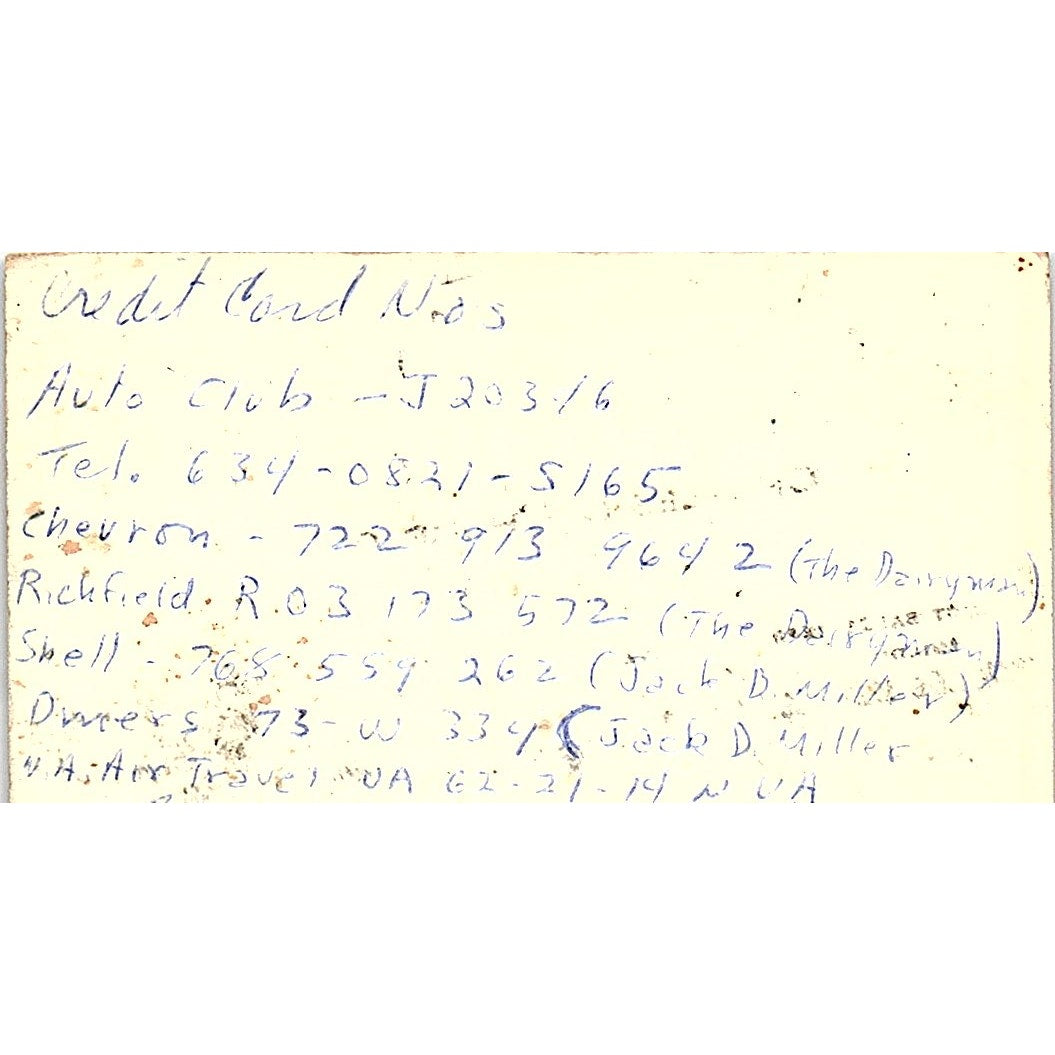 Credit Card Nos
Auto Club - J20316
Tel. 634-0821-5165
Chevron - 722 913 964 2 (The Dairyman)
Richfield. R 03 173 572 (The Dairyman)
Shell - 768 559 262 (Jack D. Miller)
Diners 73-W 334 (Jack D. Miller
Air Travel UA 62-21-14 N UA